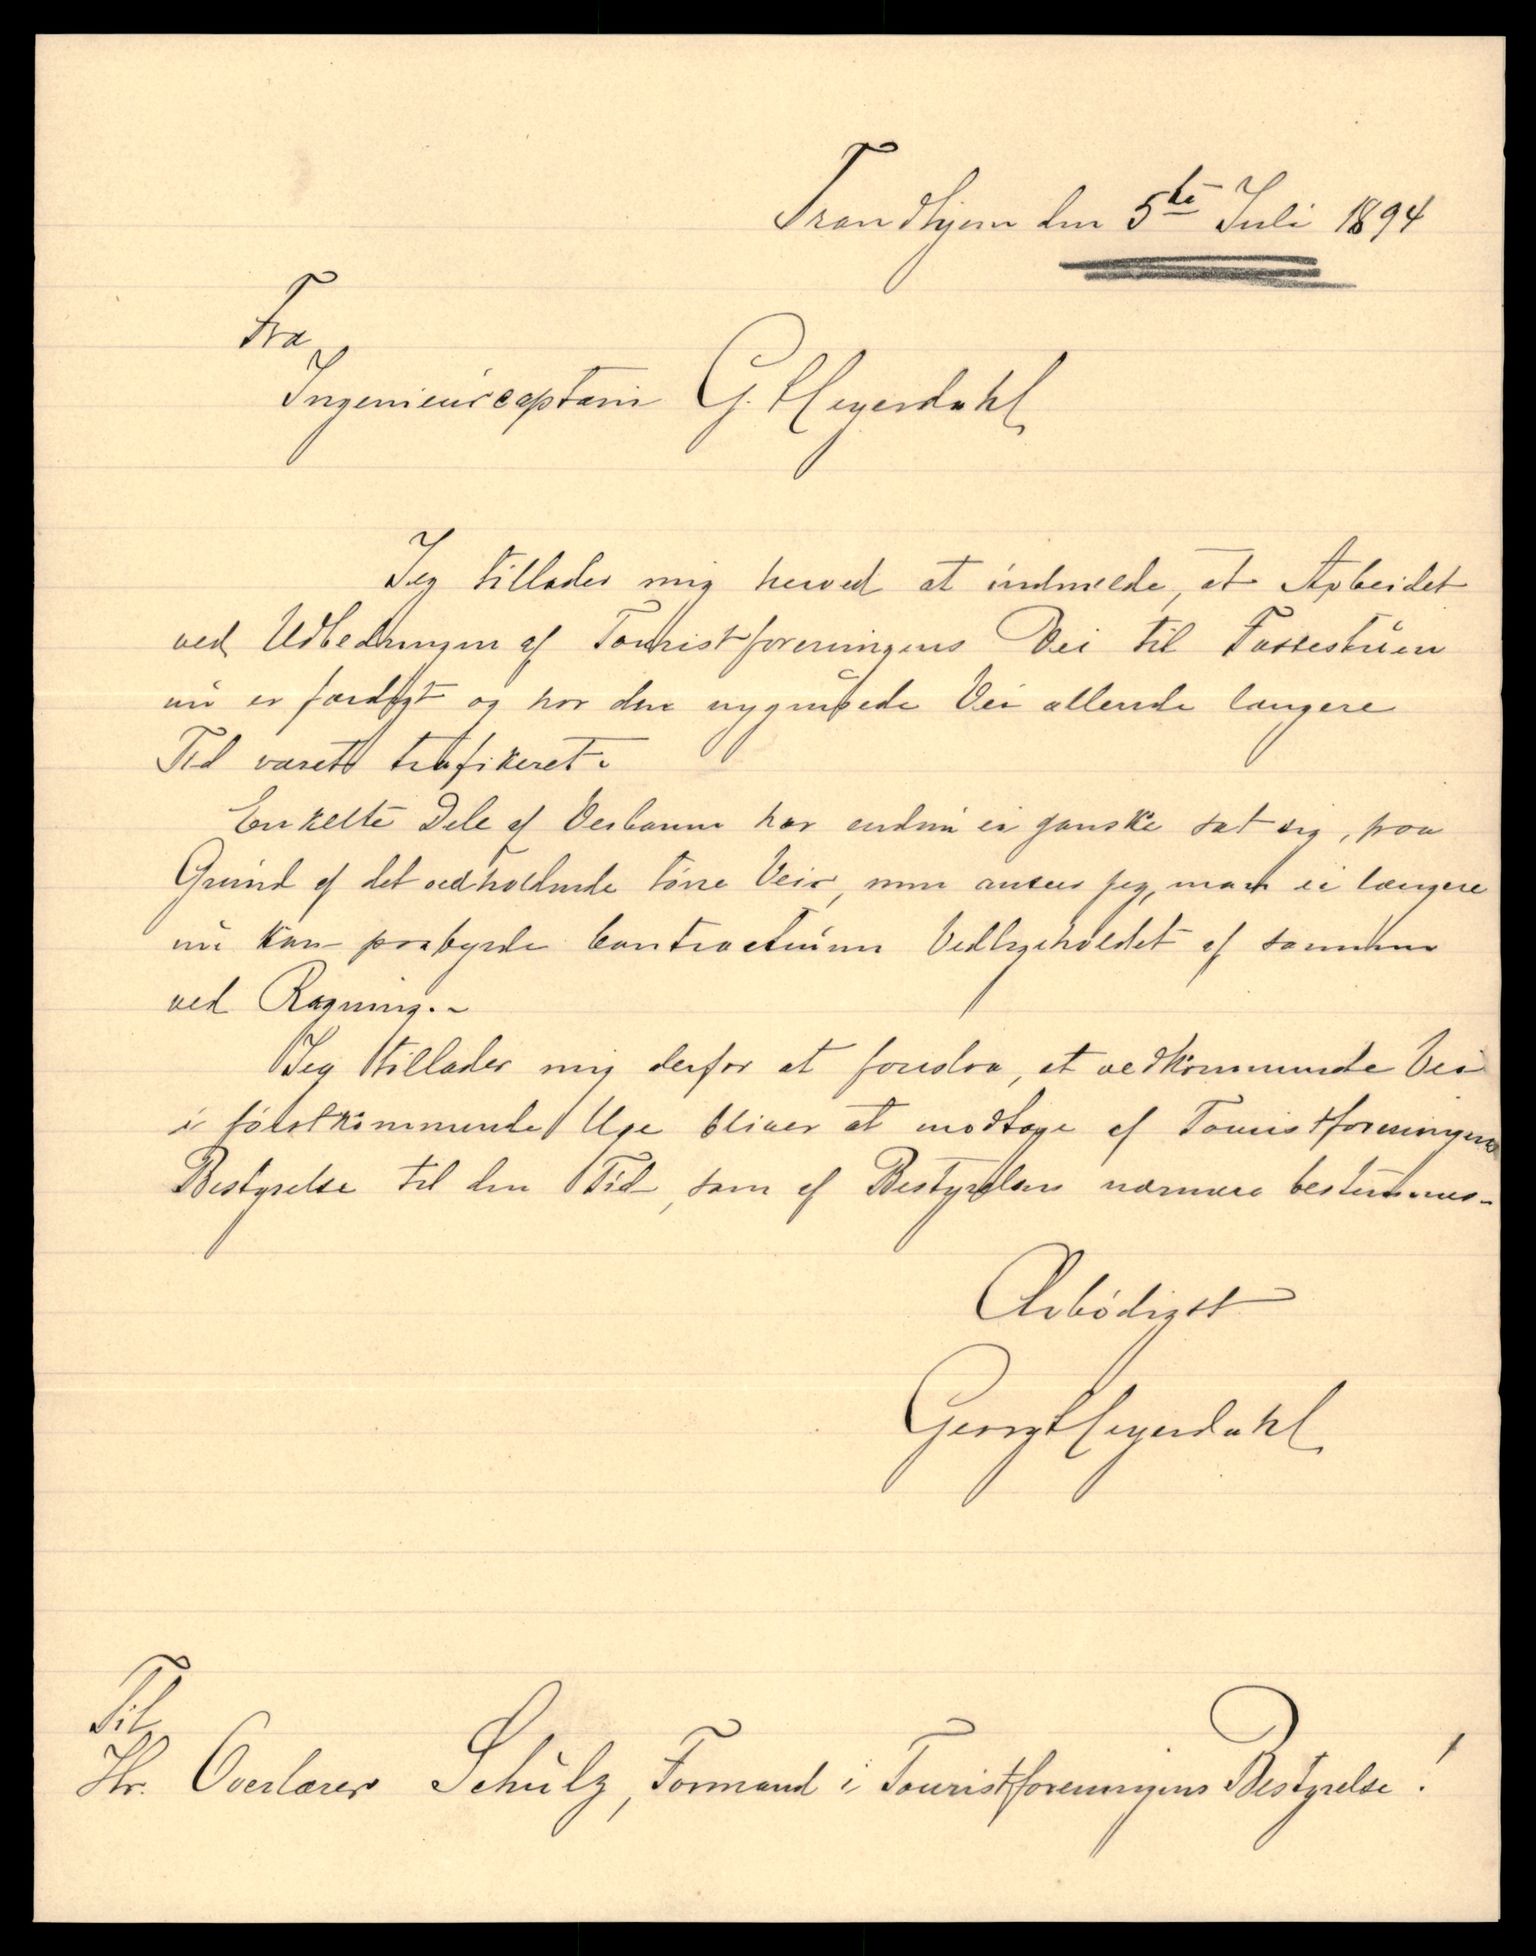 Trondhjem den 5te Juli 1894
Fra
Ingenieurcaptain G. Heyerdahl
Jeg tillader mig herved at indmelde, at Arbeidet
ved Udbedringen af Touristforeningens Vei til Fossestuen
nu er færdigt og har den nygrusede Vei allerede længere
Tid været trafikeret.
Enkelte Dele af Veibanen har endnu ei ganske sat sig, paa
Grund af det vedholdende törre Veir, men anseer jeg, man ei længere
nu kan paabyrde Contracteuren Vedligeholdet af samme
ved Ragning.-
Jeg tillader mig derfor at foreslaa, at vedkommende Vei
i förstkommende Uge bliver at modtage af Touristforeningens
Bestyrelse til den Tid, som af Bestyrelsen nærmere bestemmes.-
Ærbödigst
Georg Heyerdahl
Til
Hr. Overlærer Schulz, Formand i Touristforeningens Bestyrelse!